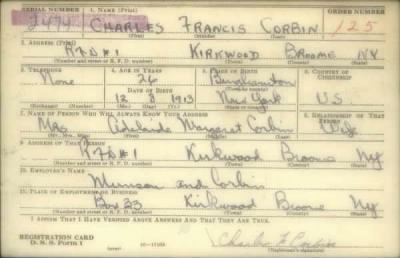 SERIAL NUMBER 1. NAME (Print) ORDER NUMBER
2474 CHARLES FRANCIS CORBIN 125
(First) (Middle) (Last)
2. ADDRESS (Print)
RFD #1 KIRKWOOD BROOME NY
(Number and street or R. F. D. number) (Town) (County) (State)
3. TELEPHONE 4. AGE IN YEARS 5. PLACE OF BIRTH 6. COUNTRY OF CITIZENSHIP
None 26 Binghamton
DATE OF BIRTH (Town or county)
12 8 1913 New York US
(Mo.) (Day) (Yr.) (State or country)
7. NAME OF PERSON WHO WILL ALWAYS KNOW YOUR ADDRESS 8. RELATIONSHIP OF THAT PERSON
Mrs Margaret Corbin Wife
(Mr., Mrs., Miss) (First) (Middle) (Last)
9. ADDRESS OF THAT PERSON
RFD #1 Kirkwood Broome NY
(Number and street or R. F. D. number) (Town) (County) (State)
10. EMPLOYER'S NAME
and Corbin
11. PLACE OF EMPLOYMENT OR BUSINESS
Box 23 Kirkwood Broome NY
(Number and street or R. F. D. number) (Town) (County) (State)
I AFFIRM THAT I HAVE VERIFIED ABOVE ANSWERS AND THAT THEY ARE TRUE.
REGISTRATION CARD
D. S. S. Form 1 16-17105 Charles F. Corbin
(Registrant's signature)